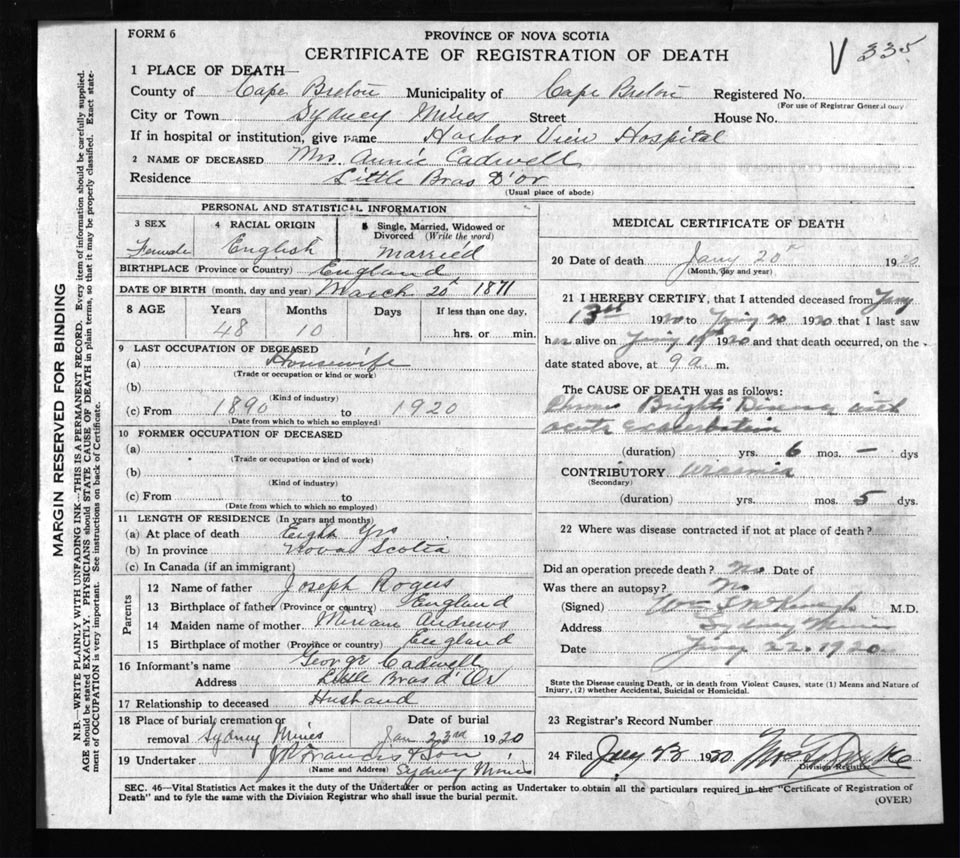 FORM 6
PROVINCE OF NOVA SCOTIA
CERTIFICATE OF REGISTRATION OF DEATH
V 335
1 PLACE OF DEATH—
County of Cape Breton Municipality of Cape Breton Registered No.
(For use of Registrar General only)
City or Town Sydney Mines Street House No.
If in hospital or institution, give name Harbor View Hospital
2 NAME OF DECEASED Mrs. Annie Cadwell
Residence Little Bras D'or
(Usual place of abode)
PERSONAL AND STATISTICAL INFORMATION
3 SEX 4 RACIAL ORIGIN 5 Single, Married, Widowed or Divorced (Write the word)
Female English Married
BIRTHPLACE (Province or Country) England
DATE OF BIRTH (month, day and year) March 20th 1871
8 AGE Years Months Days If less than one day,
48 10 hrs. or min.
9 LAST OCCUPATION OF DECEASED
(a) Housewife
(Trade or occupation or kind or work)
(b)
(Kind of industry)
(c) From 1890 to 1920
(Date from which to which so employed)
10 FORMER OCCUPATION OF DECEASED
(a)
(Trade or occupation or kind of work)
(b)
(Kind of industry)
(c) From to
(Date from which to which so employed)
11 LENGTH OF RESIDENCE (In years and months)
(a) At place of death Eight Yrs
(b) In province Nova Scotia
(c) In Canada (if an immigrant)
Parents
12 Name of father Joseph Rogers
13 Birthplace of father (Province or country) England
14 Maiden name of mother Miriam Andrews
15 Birthplace of mother (Province or country) England
16 Informant's name George Cadwell
Address Little Bras d'Or
17 Relationship to deceased Husband
18 Place of burial, cremation or removal Sydney Mines Date of burial Jan 23rd 1920
19 Undertaker & Son
(Name and Address) Sydney Mines
MEDICAL CERTIFICATE OF DEATH
20 Date of death Jany 20th 1920
(Month, day and year)
21 I HEREBY CERTIFY, that I attended deceased from Jany
13th 1920 to Jany 20 1920 that I last saw
her alive on Jany 19th 1920 and that death occurred, on the
date stated above, at 9 a. m.
The CAUSE OF DEATH was as follows:
Chronic Brights Disease with
acute exacerbation
(duration) yrs. 6 mos. — dys
CONTRIBUTORY Uraemia
(Secondary)
(duration) yrs. mos. 5 dys.
22 Where was disease contracted if not at place of death?
Did an operation precede death? No Date of
Was there an autopsy? No
(Signed) M.D.
Address Sydney Mines
Date Jany 22. 1920
State the Disease causing Death, or in death from Violent Causes, state (1) Means and Nature of
Injury, (2) whether Accidental, Suicidal or Homicidal.
23 Registrar's Record Number
24 Filed Jany 23 1920
Division Registrar
SEC. 46—Vital Statistics Act makes it the duty of the Undertaker or person acting as Undertaker to obtain all the particulars required in the "Certificate of Registration of
Death" and to fyle the same with the Division Registrar who shall issue the burial permit.
(OVER)
MARGIN RESERVED FOR BINDING
N.B.—WRITE PLAINLY WITH UNFADING INK—THIS IS A PERMANENT RECORD. Every item of information should be carefully supplied.
AGE should be stated EXACTLY. PHYSICIANS should STATE CAUSE OF DEATH in plain terms, so that it may be properly classified. Exact state-
ment of OCCUPATION is very important. See instructions on back of Certificate.